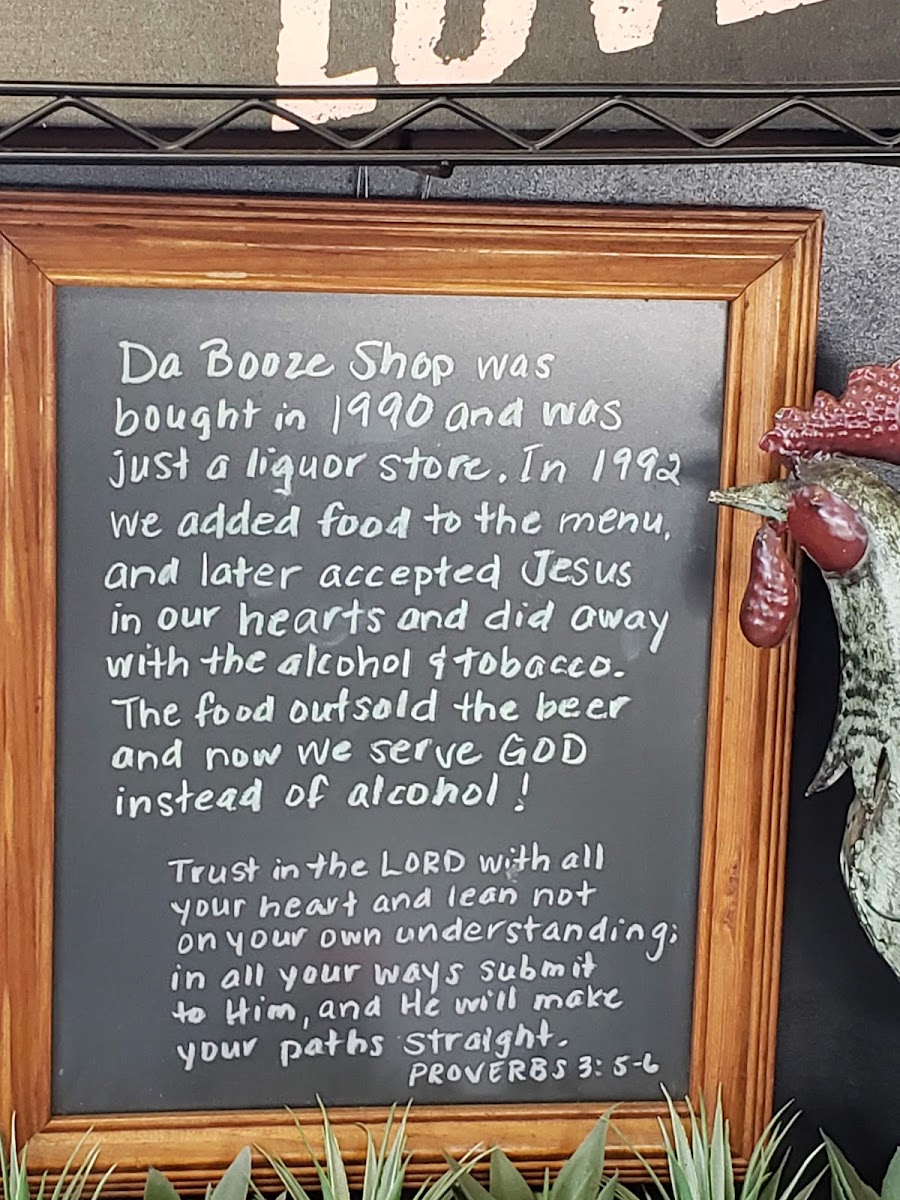 LOVE
Da Booze Shop was
bought in 1990 and was
just a liquor store. In 1992
we added food to the menu,
and later accepted Jesus
in our hearts and did away
with the alcohol & tobacco.
The food outsold the beer
and now we serve GOD
instead of alcohol!
Trust in the LORD with all
your heart and lean not
on your own understanding;
in all your ways submit
to Him, and He will make
your paths straight.
PROVERBS 3:5-6